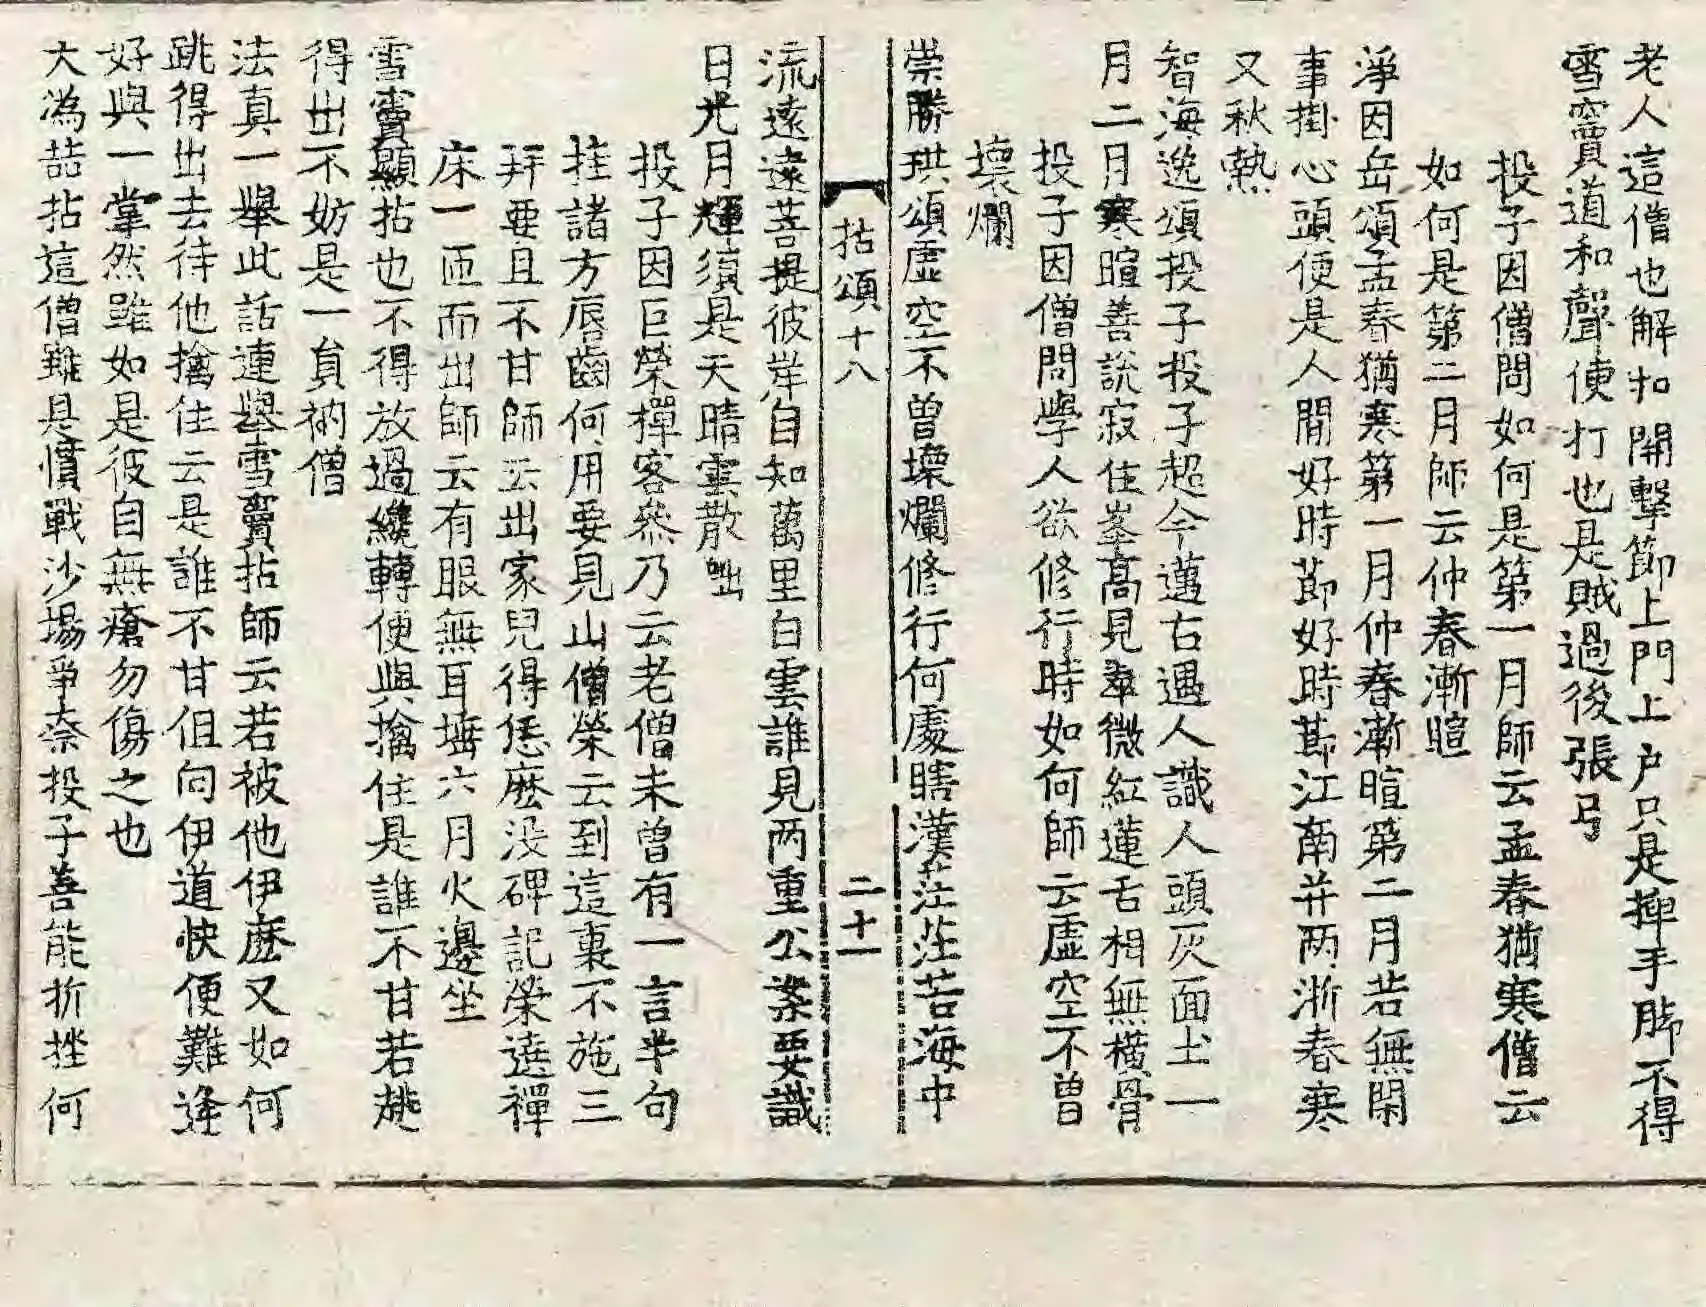 老人這僧也解扣開擊節上門上户只是揮手脚不得
雪竇道和聲便打也是賊過後張弓
投子因僧問如何是第一月師云孟春猶寒僧云
如何是第二月師云仲春漸暄
淨因岳頌孟春猶寒第一月仲春漸暄第二月若無閑
事掛心頭便是人間好時節好時莭江南并两浙春寒
又秋熱
智海逸頌投子投子超今邁古遇人識人頭灰面土一
月二月寒暄善説寂住峯高見翠微紅蓮舌相無橫骨
投子因僧問學人欲修行時如何師云虛空不曾
壞爛
崇勝珙頌虛空不曾壞爛修行何處瞎漢茫茫苦海中
拈頌十八 二十一
流遠遠菩提彼岸自知萬里白雲誰見两重公案要識
日光月輝須是天晴雲散咄
投子因巨榮禪客叅乃云老僧未曾有一言半句
挂諸方唇齒何用要見山僧榮云到這裏不施三
拜要且不甘師云出家兒得恁麽没碑記榮遶禪
床一匝而出師云有眼無耳垛六月火邊坐
雪竇顯拈也不得放過纔轉便與擒住是誰不甘若趒
得出不妨是一員衲僧
法真一舉此話連舉雪竇拈師云若被他伊麽又如何
跳得出去待他擒住云是誰不甘但向伊道快便難逢
好與一掌然雖如是彼自無瘡勿傷之也
大溈喆拈這僧雖是慣戰沙場爭柰投子善能折挫何